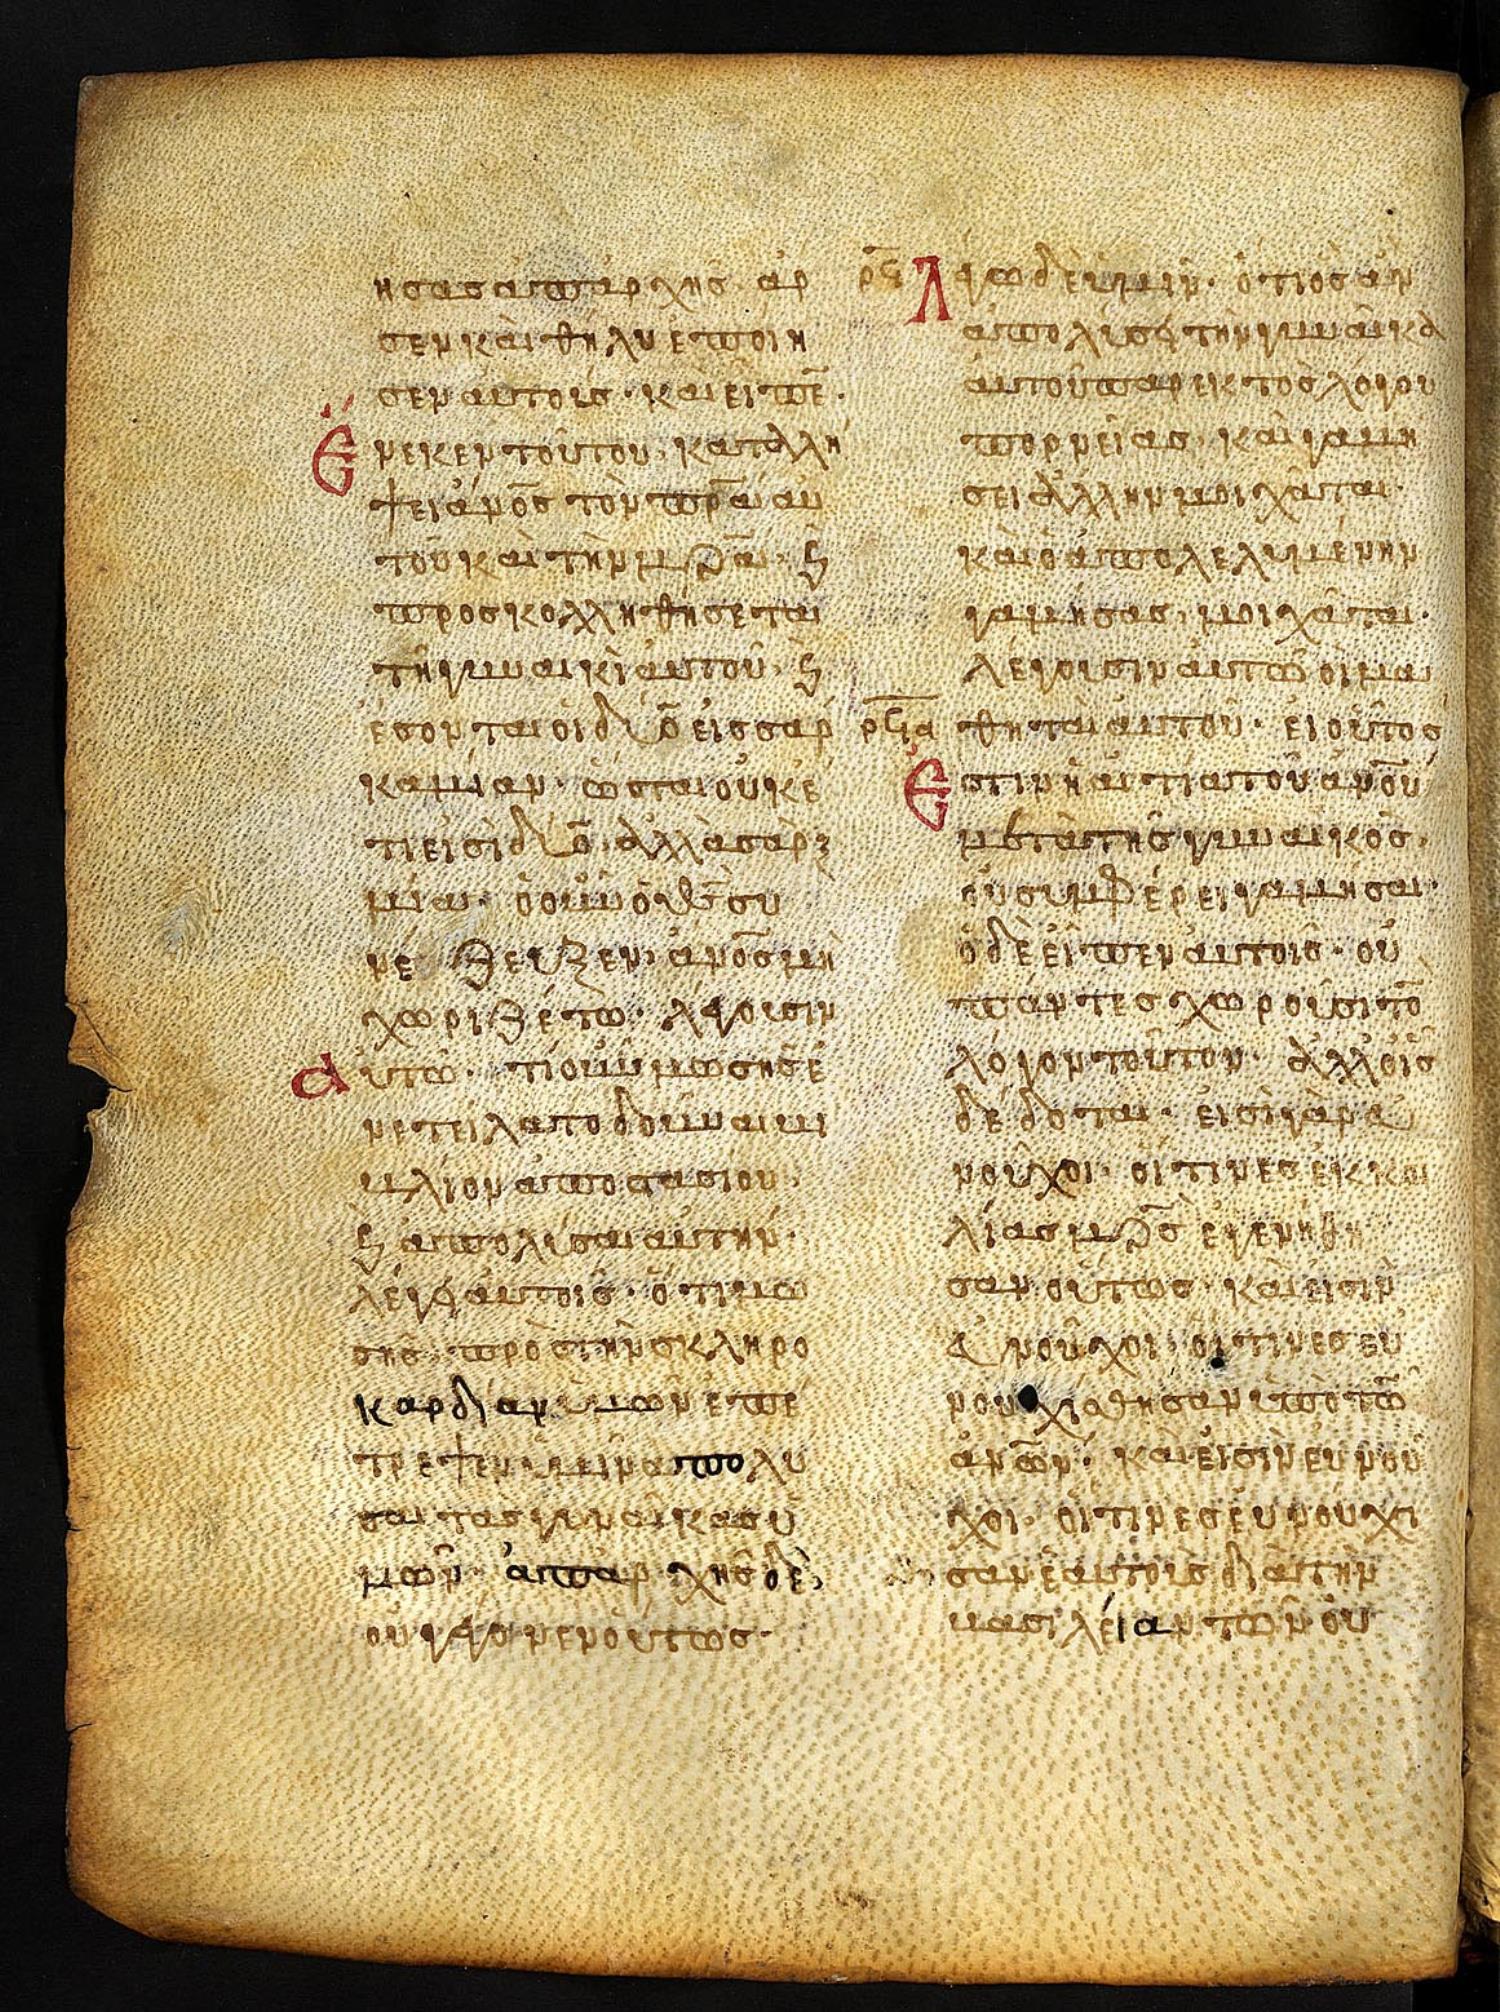 ησασ απαρχῆσ· ἀρ
σεν καὶ θῆλυ ἐποίη
σεν αὐτοὺσ· καὶ εἶπε̅·
Ἕνεκεν τούτου, καταλλή
ψει ἀν̅ο̅σ τὸν π̅ρ̅α̅ αυ
τοῦ καὶ τὴν μ̅ρ̅α̅· ϗ
προσκολληθήσεται
τῇ γυναικὶ αὐτοῦ· ϗ
ἔσονται οἱ δύο εἰσ σάρ
κα μίαν· ὥσται οὐκέ
τι εἰσὶ δύο· ἀλλὰ σὰρξ
μία· ὃ οὖν ὁ θ̅σ̅ συ
νέζευξεν· ἀν̅ο̅σ μὴ
χωριζέτω· λέγουσιν
αὐτῶ· τί οὖν μωσῆσ ἐ
νετείλατο δοῦναι βι
βλίον ἀποστασίου·
ϗ ἀπολῦσαι αὐτήν·
λέγει αὐτοῖσ· ὅτι μω
σῆσ· πρὸσ τὴν σκληρο
καρδίαν ὑμῶν ἐπέ
τρεψεν ὑμῖν ἀπολῦ
σαι τὰσ γυναῖκασ ὑ
μῶν· ἀπαρχῆσ δὲ,
οὐ γέγονεν οὕτωσ·
ρ̅ϟ̅ Λέγω δὲ ὑμῖν· ὅτι ὃσ ἂν
ἀπολύσει τὴν γυναῖκα
αὐτοῦ παρεκτὸσ λόγου
πορνείασ, καὶ γαμή
σει ἄλλην μοιχᾶται·
καὶ ὁ ἀπολελυμένην
γαμήσασ, μοιχᾶται·
λέγουσιν αὐτῶ οἱ μα
ρ̅ϟ̅α̅ θηταὶ αὐτοῦ· εἰ οὕτοσ
Ἐστὶν ἡ αἰτία τοῦ ἀν̅ο̅υ
μετὰ τῆσ γυναικὸσ,
οὐ συμφέρει γαμῆσαι·
ὁ δὲ εἶπεν αὐτοῖσ· οὐ
πάντεσ χωροῦσι τὸ̅
λόγον τοῦτον· ἀλλ' οἷσ
δέδοται· εἰσὶ γὰρ εὐ
νοῦχοι· οἵτινεσ ἐκ κοι
λίασ μ̅ρ̅σ̅ ἐγενήθη
σαν οὕτωσ· καὶ εἰσὶν
εὐνοῦχοι, οἵτινεσ εὐ
νουχίσθησαν ὑπὸ τῶ̅
ἀν̅ω̅ν· καὶ εἰσὶν εὐνοῦ
χοι· οἵτινεσ εὐνούχι
σαν ἑαυτοὺσ διὰ τὴν
βασιλείαν τῶν οὐ